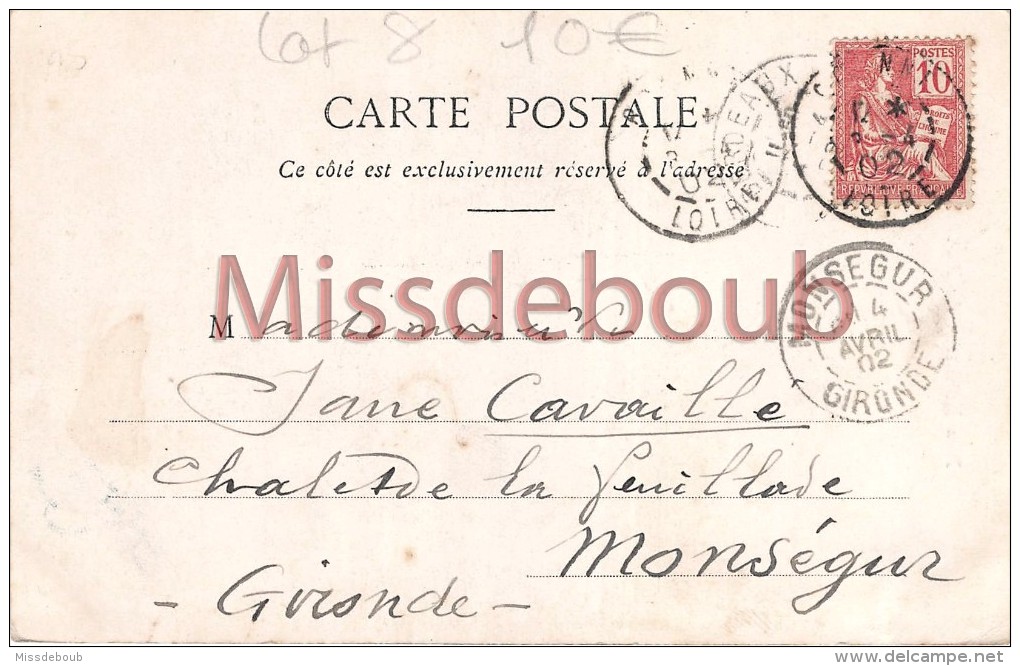 Lot 8 10€
CARTE POSTALE
Ce côté est exclusivement réservé à l'adresse
POSTES
10
REPUBLIQUE FRANCAISE
02
LOIRE
LOIRE
Missdeboub
MONSEGUR
4
AVRIL
02
GIRONDE
Mademoiselle
Jane Cavaillé
Chalet de la feuillade
Monségur
- Gironde -
Missdeboub
www.delcampe.net